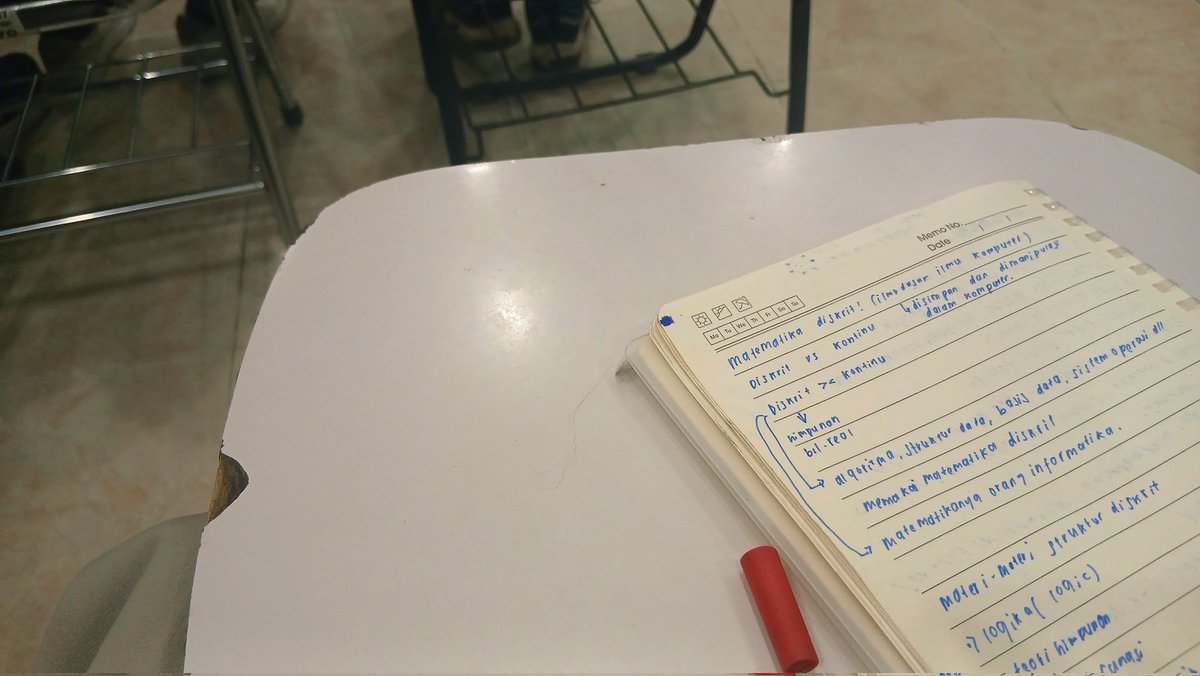 Memo No.
Date / /
Mo Tu We Th Fr Sa Su
Matematika diskrit! (ilmu dasar ilmu komputer)
Diskrit vs kontinu ↳disimpan dan dimanipulasi
dalam komputer.
Diskrit >< kontinu
himpunan
bil.real
algoritma, struktur data, basis data, sistem operasi dll
memakai matematika diskrit
Matematikanya orang informatika.
Materi-materi struktur diskrit
logika (logic)
teori himpunan
fungsi